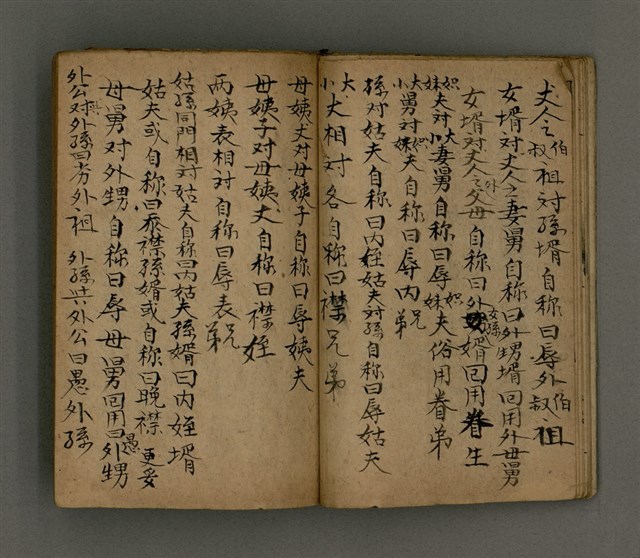 丈人之伯叔祖对孫壻自称曰辱外伯叔祖
女壻对丈人之妻舅自称曰外甥壻回用外母舅
女壻对丈人之外父母自称曰外女孫婿回用眷生
姒妹夫对大小妻舅自称曰辱姒妹夫俗用眷弟
大小舅对姒妹夫自称曰辱内兄弟
孫对姑夫自称曰内姪姑夫对孫自称曰辱姑夫
大小丈相对各自称曰襟兄弟
母姨丈对母姨子自称曰辱姨夫
母姨子对母姨丈自称曰襟姪
兩姨表相对自称曰辱表兄弟
姑孫同門相对姑夫自称曰内姑夫孫婿曰内姪壻
姑夫或自称曰忝襟孫婿或自称曰晚襟更妥
母舅对外甥自称曰辱母舅回用曰愚外甥
外公对外孫曰劣外祖 外孫共外公曰愚外孫